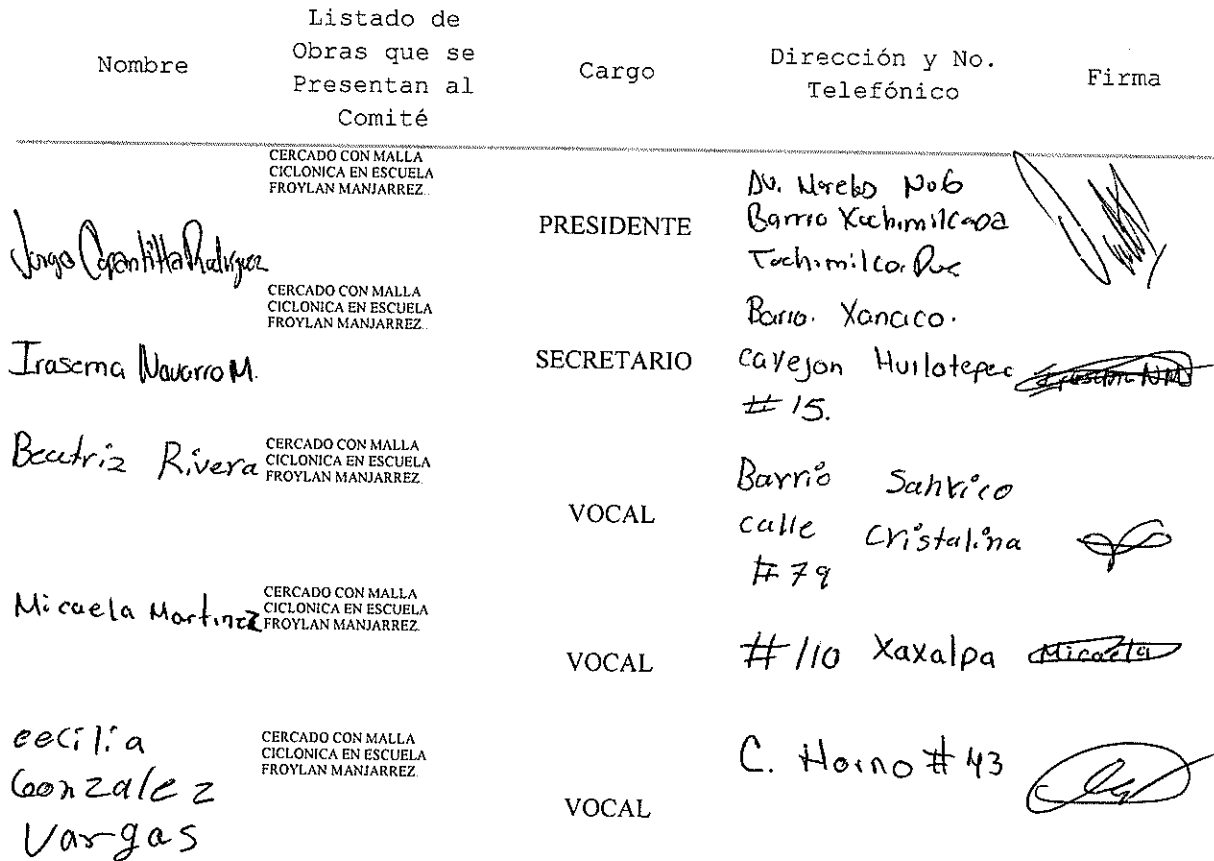 Nombre
Listado de
Obras que se
Presentan al
Comité
Cargo
Dirección y No.
Telefónico
Firma
CERCADO CON MALLA
CICLONICA EN ESCUELA
FROYLAN MANJARREZ.
Jorge Rodriguez
PRESIDENTE
No6
Barrio
Tochimilco. Pue
CERCADO CON MALLA
CICLONICA EN ESCUELA
FROYLAN MANJARREZ.
Irasema Navarro M.
SECRETARIO
Barrio. Xancaco.
cavejon Huilotepec
# 15.
Irasema NM
Beatriz Rivera
CERCADO CON MALLA
CICLONICA EN ESCUELA
FROYLAN MANJARREZ.
VOCAL
Barrio
calle Cristalina
# 79
Micaela Martinez
CERCADO CON MALLA
CICLONICA EN ESCUELA
FROYLAN MANJARREZ.
VOCAL
# 110 Xaxalpa
Micaela
cecilia
Gonzalez
Vargas
CERCADO CON MALLA
CICLONICA EN ESCUELA
FROYLAN MANJARREZ.
VOCAL
C. Horno # 43